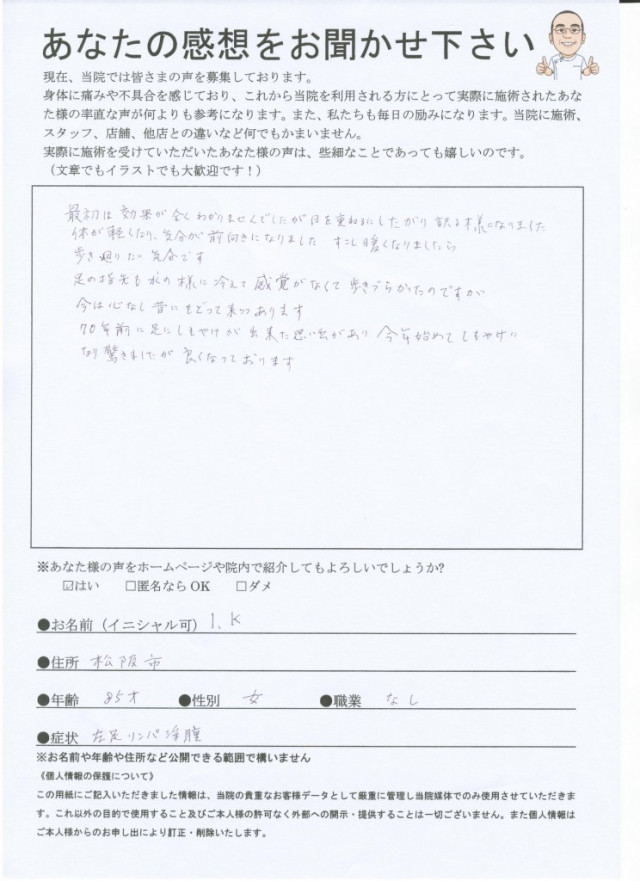 あなたの感想をお聞かせ下さい
現在、当院では皆さまの声を募集しております。
身体に痛みや不具合を感じており、これから当院を利用される方にとって実際に施術されたあな
た様の率直な声が何よりも参考になります。また、私たちも毎日の励みになります。当院に施術、
スタッフ、店舗、他店との違いなど何でもかまいません。
実際に施術を受けていただいたあなた様の声は、些細なことであっても嬉しいのです。
（文章でもイラストでも大歓迎です！）
最初は効果が全くわかりませんでしたが日を重ねるにしたがり訳る様になりました
体が軽くなり、気分が前向きになりました すこし暖くなりましたら
歩き廻りたい気分です
足の指先も氷の様に冷えて感覚がなくて歩きづらかったのですが
今は心なし昔にもどって来つつあります
70年前に足にしもやけが出来た思い出があり 今年始めてしもやけに
なり驚きましたが良くなっております
※あなた様の声をホームページや院内で紹介してもよろしいでしょうか?
☑はい □匿名なら OK □ダメ
●お名前（イニシャル可） I.K
●住所 松阪市
●年齢 85才 ●性別 女 ●職業 なし
●症状 左足リンパ浮腫
※お名前や年齢や住所など公開できる範囲で構いません
《個人情報の保護について》
この用紙にご記入いただきました情報は、当院の貴重なお客様データとして厳重に管理し当院媒体でのみ使用させていただきま
す。これ以外の目的で使用すること及びご本人様の許可なく外部への開示・提供することは一切ございません。また個人情報は
ご本人様からのお申し出により訂正・削除いたします。